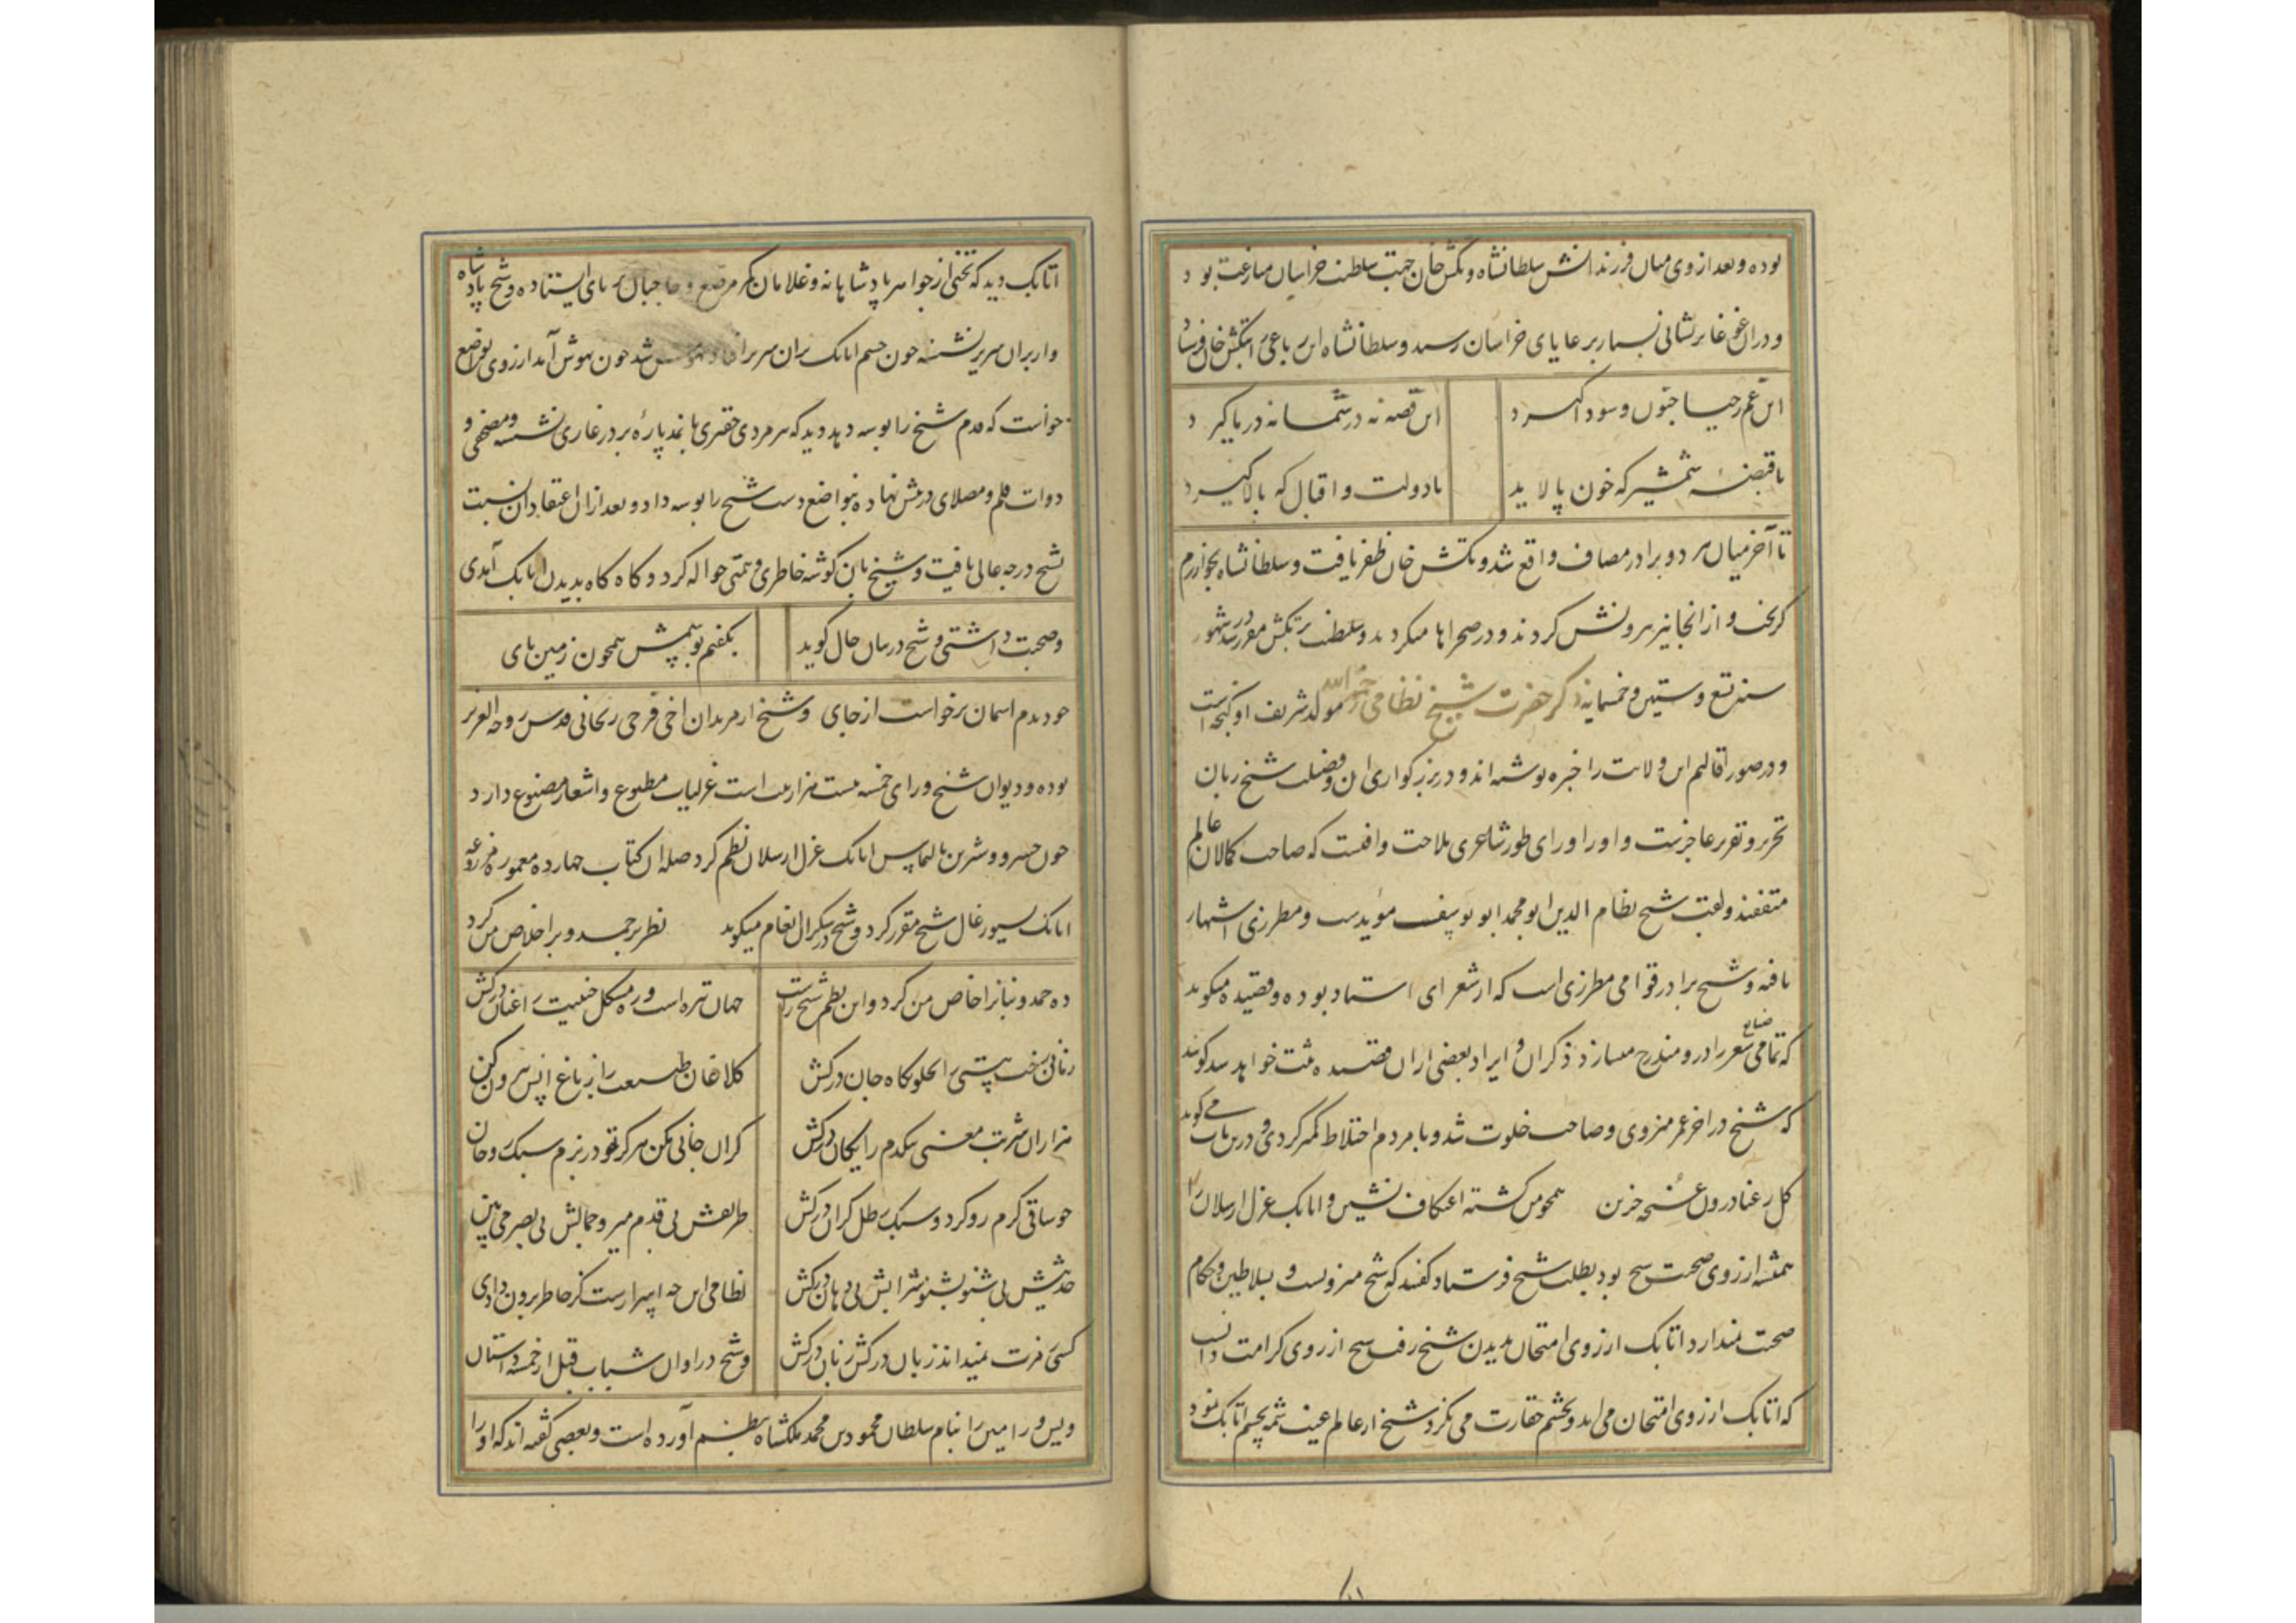 بوده و بعد از وی میان فرزندانش سلطانشاه و تکش خان جهت سلطنت خراسان منازعت بود
و در آن غوغا پریشانی بسیار برعایای خراسان رسید و سلطانشاه این رباعی به تکش خان فرستاد
این غم ز حسا جنون و سودا گیرد
این قصه نه در شما نه در ما گیرد
تا قبضهٔ شمشیر که خون پالاید
تا دولت و اقبال که بالا گیرد
تا آخر میان هر دو برادر مصاف واقع شد و تکش خان ظفر یافت و سلطانشاه بخوارزم
گریخت و از آنجا نیز بیرونش کردند و در صحراها میگردید و سلطنت بر تکش مقرر شد شهور
سنه تسع و ستین و خمسمایه ذکر حضرت شیخ نظامی رحمه الله مولد شریف او گنجه است
و در صور اقالیم این ولایت را جنزه نوشته‌اند و در بزرگواری او و فضیلت شیخ زبان
تحریر و تقریر عاجزست و او را ورای طور شاعری ملاحت وافیست که صاحب کمالان عالم
متفقند و لقب شیخ نظام الدین ابو محمد ابو یوسف مؤیدست و مطرزی اشتهار
یافته و شیخ برادر قوامی مطرزی است که از شعرای استاد بوده و قصیده میگوید
که تمامی صنایع شعر را در و مندرج میسازد و ذکر آن و ایراد بعضی از آن قصیده مثبت خواهد شد گویند
که شیخ در آخر عمر منزوی و صاحب خلوت شد و با مردم اختلاط کمتر کردی و درین باب می گوید
گل رعنا درون غنچه حزین همچو من گشته اعتکاف نشین و اتابک غزل ارسلان را
همیشه آرزوی صحبت شیخ بود بطلب شیخ فرستاد گفتند که شیخ منزویست و بسلاطین و حکام
صحبت نمیدارد اتابک از روی امتحان بدیدن شیخ رفت شیخ از روی کرامت دانست
که اتابک از روی امتحان می‌آید و بچشم حقارت می نگرد شیخ از عالم غیب شمه بچشم اتابک نمود
اتابک دید که تختی از جواهر پادشاهانه و غلامان کمر مرصع و حاجبان بر پای ایستاده و شیخ پادشاه
وار بران سریر نشسته چون چشم اتابک بران سریر افتاد بیهوش شد چون بهوش آمد از روی تواضع
خواست که قدم شیخ را بوسه دهد دید که پیرمردی حقیری با نمد پارهٔ بر در غاری نشسته و مصحفی و
دوات قلم و مصلای در پیش نهاده بتواضع دست شیخ را بوسه داد و بعد از آن اعتقاد آن نسبت
شیخ درجه عالی یافت و شیخ بآن گوشه خاطری و همتی حواله کرد و گاه گاه بدیدن اتابک آمدی
و صحبت داشتی و شیخ در بیان حال گوید
بگفتم بوسمش همچون زمین پای
چو دیدم آسمان برخواست از جای و شیخ از مریدان اخی فرجی زنجانی قدس روحه العزیز
بوده و دیوان شیخ ورای خمسه بیست هزار بیت است غزلیات مطبوع و اشعار مصنوع دارد
چون خسرو و شیرین بالتماس اتابک غزل ارسلان نظم کرد صله آن کتاب چهارده معموره مزروعه
اتابک سیورغال شیخ مقرر کرد و شیخ در شکر آن انعام میگوید نظر بر حمد و بر اخلاص من کرد
ده حمدونیانرا خاص من کرد و این نظم شیخ راست
جهان تیره است و ره مشکل جنیبت را عنان درکش
زمانی رخت هستی را بخلوتگاه جان درکش
کلاغان طبیعت را ز باغ انس بیرون کن
هزاران شربت معنی بیکدم رایگان درکش
گران جانی مکن هرگز تو در بزم سبک روحان
چو ساقی گرم رو گردد سبک رطل گران درکش
طریقش بی قدم میرو جمالش بی بصر می بین
حدیثش بی شنو بشنو شرابش بی دهان درکش
نظامی این چه اسرارست کز خاطر برون دادی
کسی رمزت نمیداند زبان درکش زبان درکش
و شیخ در اوان شباب قبل از خمسه داستان
ویس و رامین را بنام سلطان محمود بن محمد ملکشاه بنظم آورده است و بعضی گفته‌اند که او را